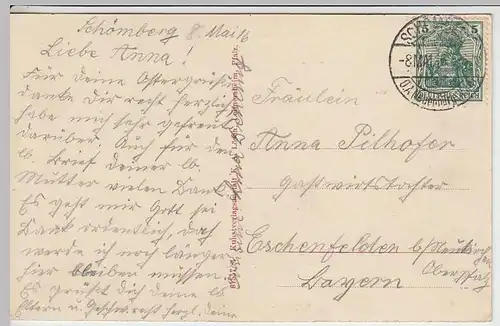 Schömberg 8. Mai 13
Liebe Anna!
Für Deine Ostergrüße
danke Dir recht herzlich
habe mich sehr gefreut
darüber. Auch für den
lb. Brief deiner lb.
Mutter vielen Dank.
Es geht mir Gott sei
Dank ordentlich, doch
werde ich noch länger
hier bleiben müssen.
Es grüßt Dich deine lb
Eltern u. Geschw. recht herzl. Deine
Fräulein
Anna Pilhofer
Gastwirtstochter
Eschenfelden b/Neukirchen
Oberpfalz
Bayern
5